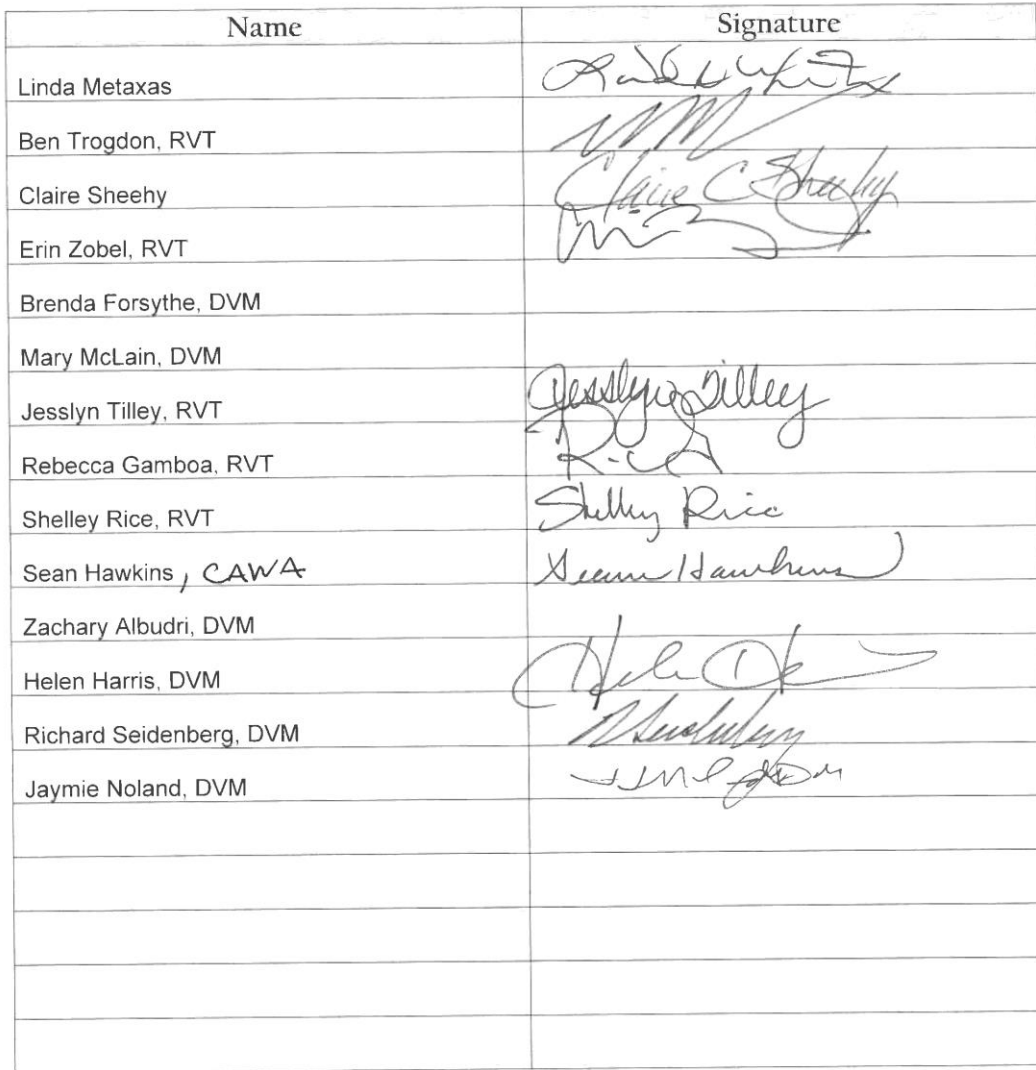 Name Signature
Linda Metaxas
Ben Trogdon, RVT
Claire Sheehy Claire C Sheehy
Erin Zobel, RVT
Brenda Forsythe, DVM
Mary McLain, DVM
Jesslyn Tilley, RVT Jesslyn Tilley
Rebecca Gamboa, RVT
Shelley Rice, RVT Shelley Rice
Sean Hawkins, CAWA Sean Hawkins
Zachary Albudri, DVM
Helen Harris, DVM
Richard Seidenberg, DVM
Jaymie Noland, DVM